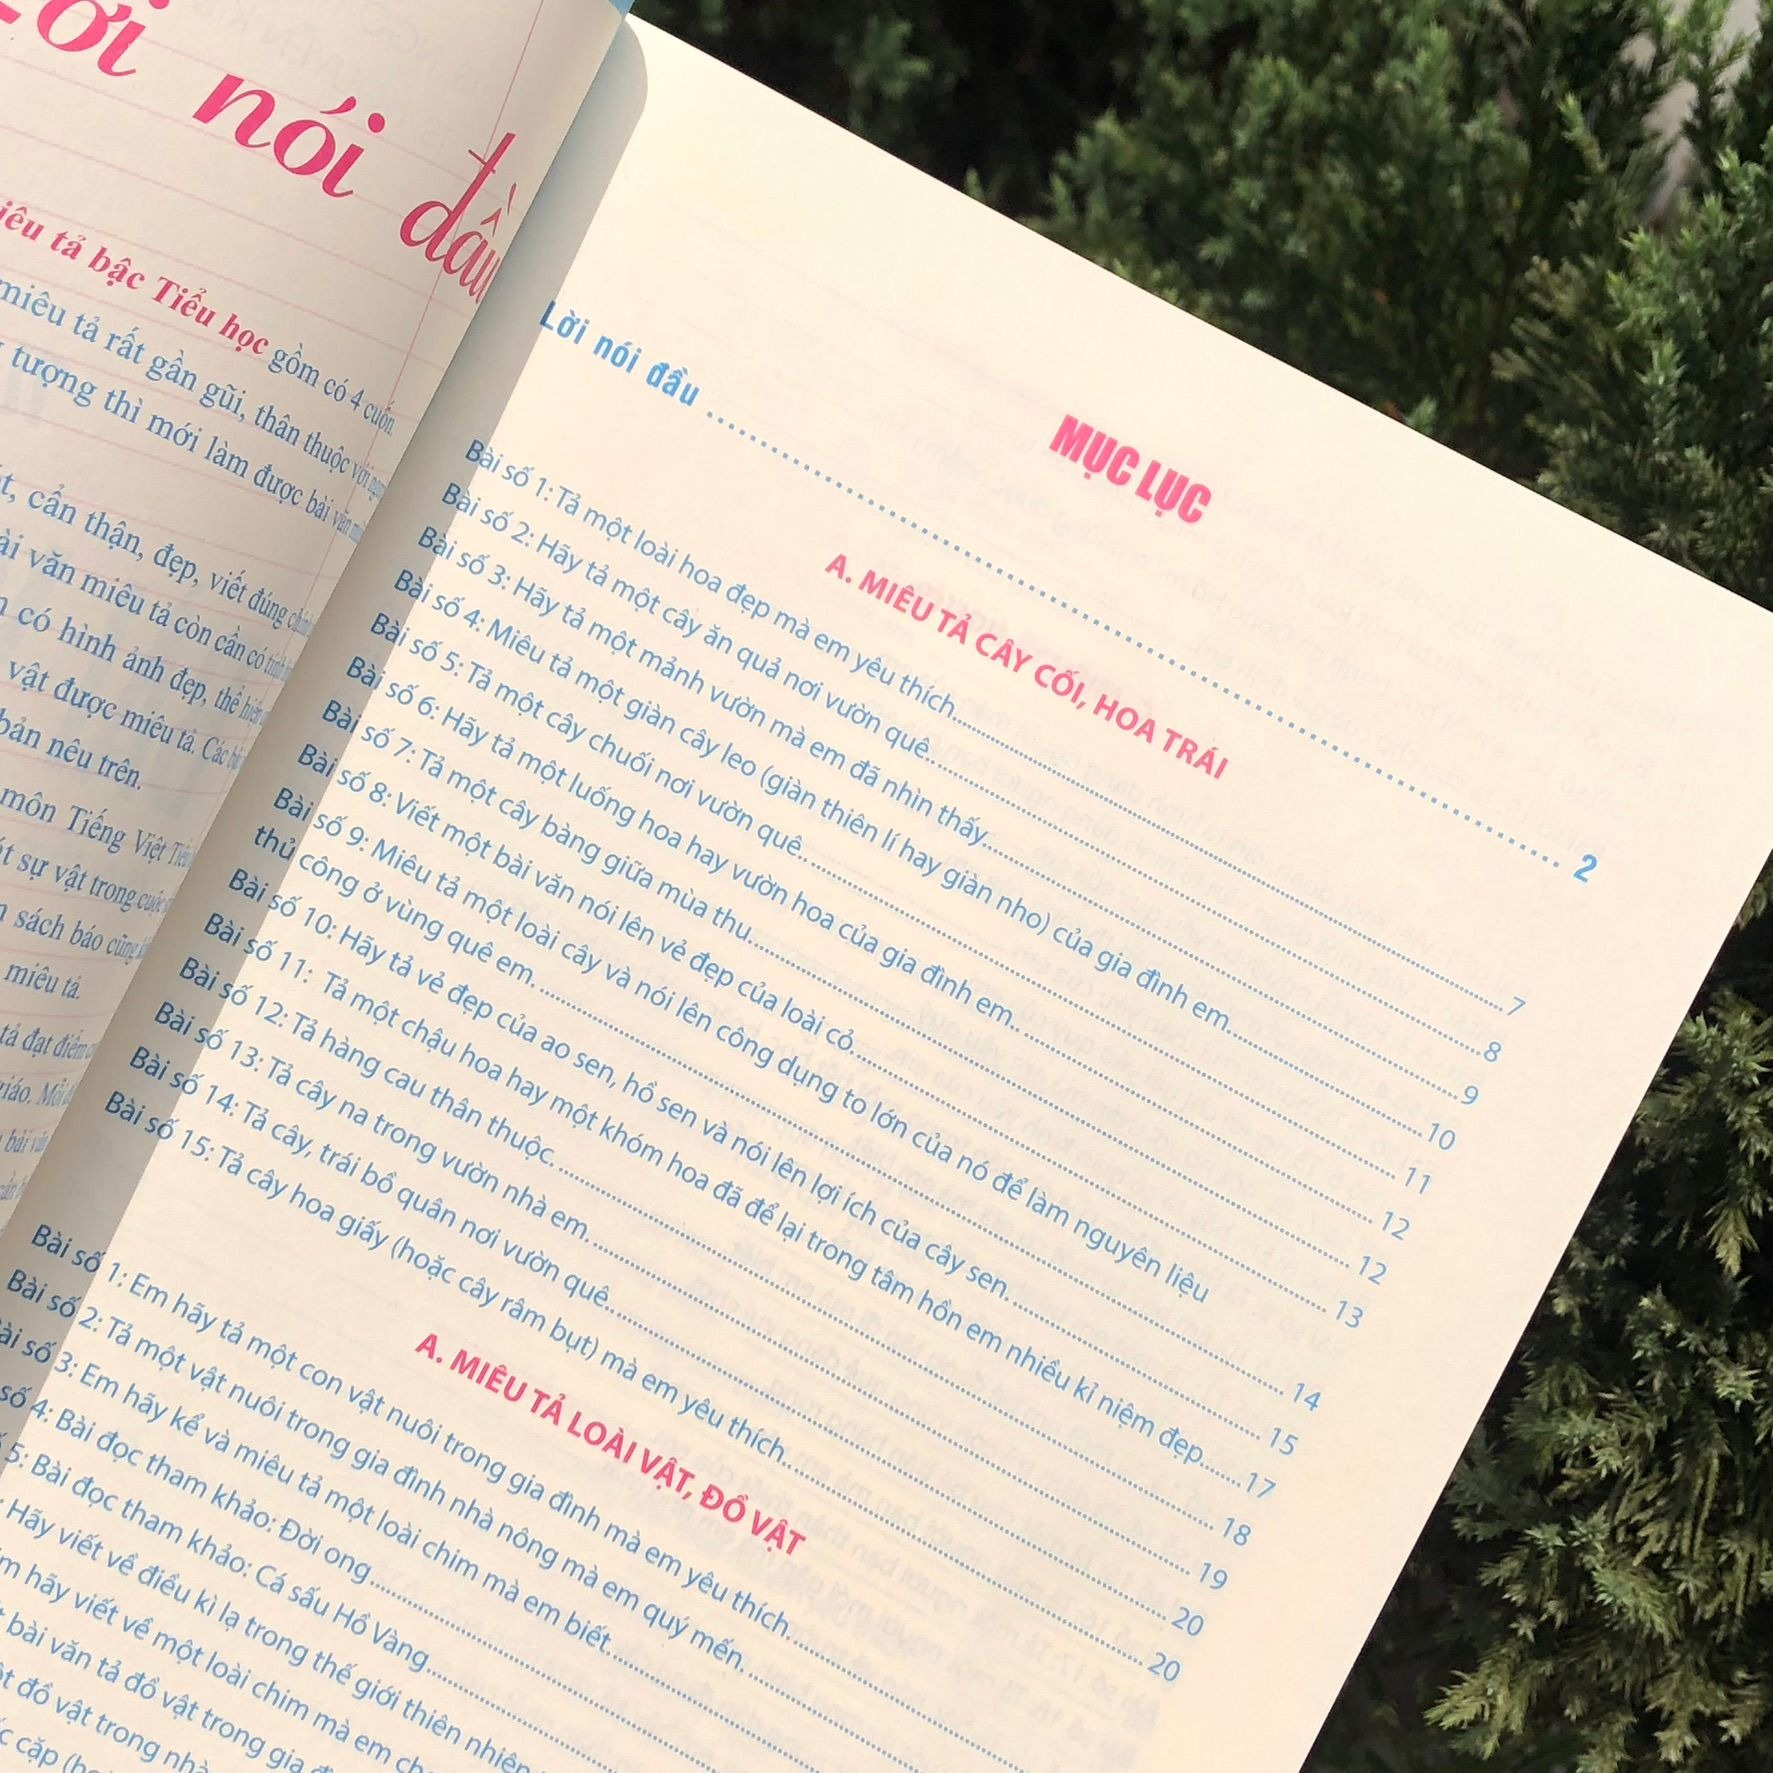 nói đầu
miêu tả bậc Tiểu học gồm có 4 cuốn.
miêu tả rất gần gũi, thân thuộc với
tượng thì mới làm được bài văn
cẩn thận, đẹp, viết đúng
văn miêu tả còn cần có
có hình ảnh đẹp, thể hiện
vật được miêu tả. Các
bản nêu trên.
môn Tiếng Việt
sự vật trong cuộc
sách báo cũng
miêu tả.
tả đạt điểm
giáo. Mỗi
bài
MỤC LỤC
Lời nói đầu ........ 2
A. MIÊU TẢ CÂY CỐI, HOA TRÁI
Bài số 1: Tả một loài hoa đẹp mà em yêu thích........ 7
Bài số 2: Hãy tả một cây ăn quả nơi vườn quê........ 8
Bài số 3: Hãy tả một mảnh vườn mà em đã nhìn thấy........ 9
Bài số 4: Miêu tả một giàn cây leo (giàn thiên lí hay giàn nho) của gia đình em........ 10
Bài số 5: Tả một cây chuối nơi vườn quê........ 11
Bài số 6: Hãy tả một luống hoa hay vườn hoa của gia đình em........ 12
Bài số 7: Tả một cây bàng giữa mùa thu........ 12
Bài số 8: Viết một bài văn nói lên vẻ đẹp của loài cỏ........ 13
Bài số 9: Miêu tả một loài cây và nói lên công dụng to lớn của nó để làm nguyên liệu
thủ công ở vùng quê em. ........ 14
Bài số 10: Hãy tả vẻ đẹp của ao sen, hồ sen và nói lên lợi ích của cây sen. ........ 15
Bài số 11: Tả một chậu hoa hay một khóm hoa đã để lại trong tâm hồn em nhiều kỉ niệm đẹp........ 17
Bài số 12: Tả hàng cau thân thuộc. ........ 18
Bài số 13: Tả cây na trong vườn nhà em. ........ 19
Bài số 14: Tả cây, trái bồ quân nơi vườn quê........ 20
Bài số 15: Tả cây hoa giấy (hoặc cây râm bụt) mà em yêu thích........ 20
A. MIÊU TẢ LOÀI VẬT, ĐỒ VẬT
Bài số 1: Em hãy tả một con vật nuôi trong gia đình mà em yêu thích........
Bài số 2: Tả một vật nuôi trong gia đình nhà nông mà em quý mến........
Bài số 3: Em hãy kể và miêu tả một loài chim mà em biết........
số 4: Bài đọc tham khảo: Đời ong........
5: Bài đọc tham khảo: Cá sấu Hồ Vàng........
Hãy viết về điều kì lạ trong thế giới thiên nhiên
hãy viết về một loài chim mà em
bài văn tả đồ vật trong gia
đồ vật trong nhà
cặp